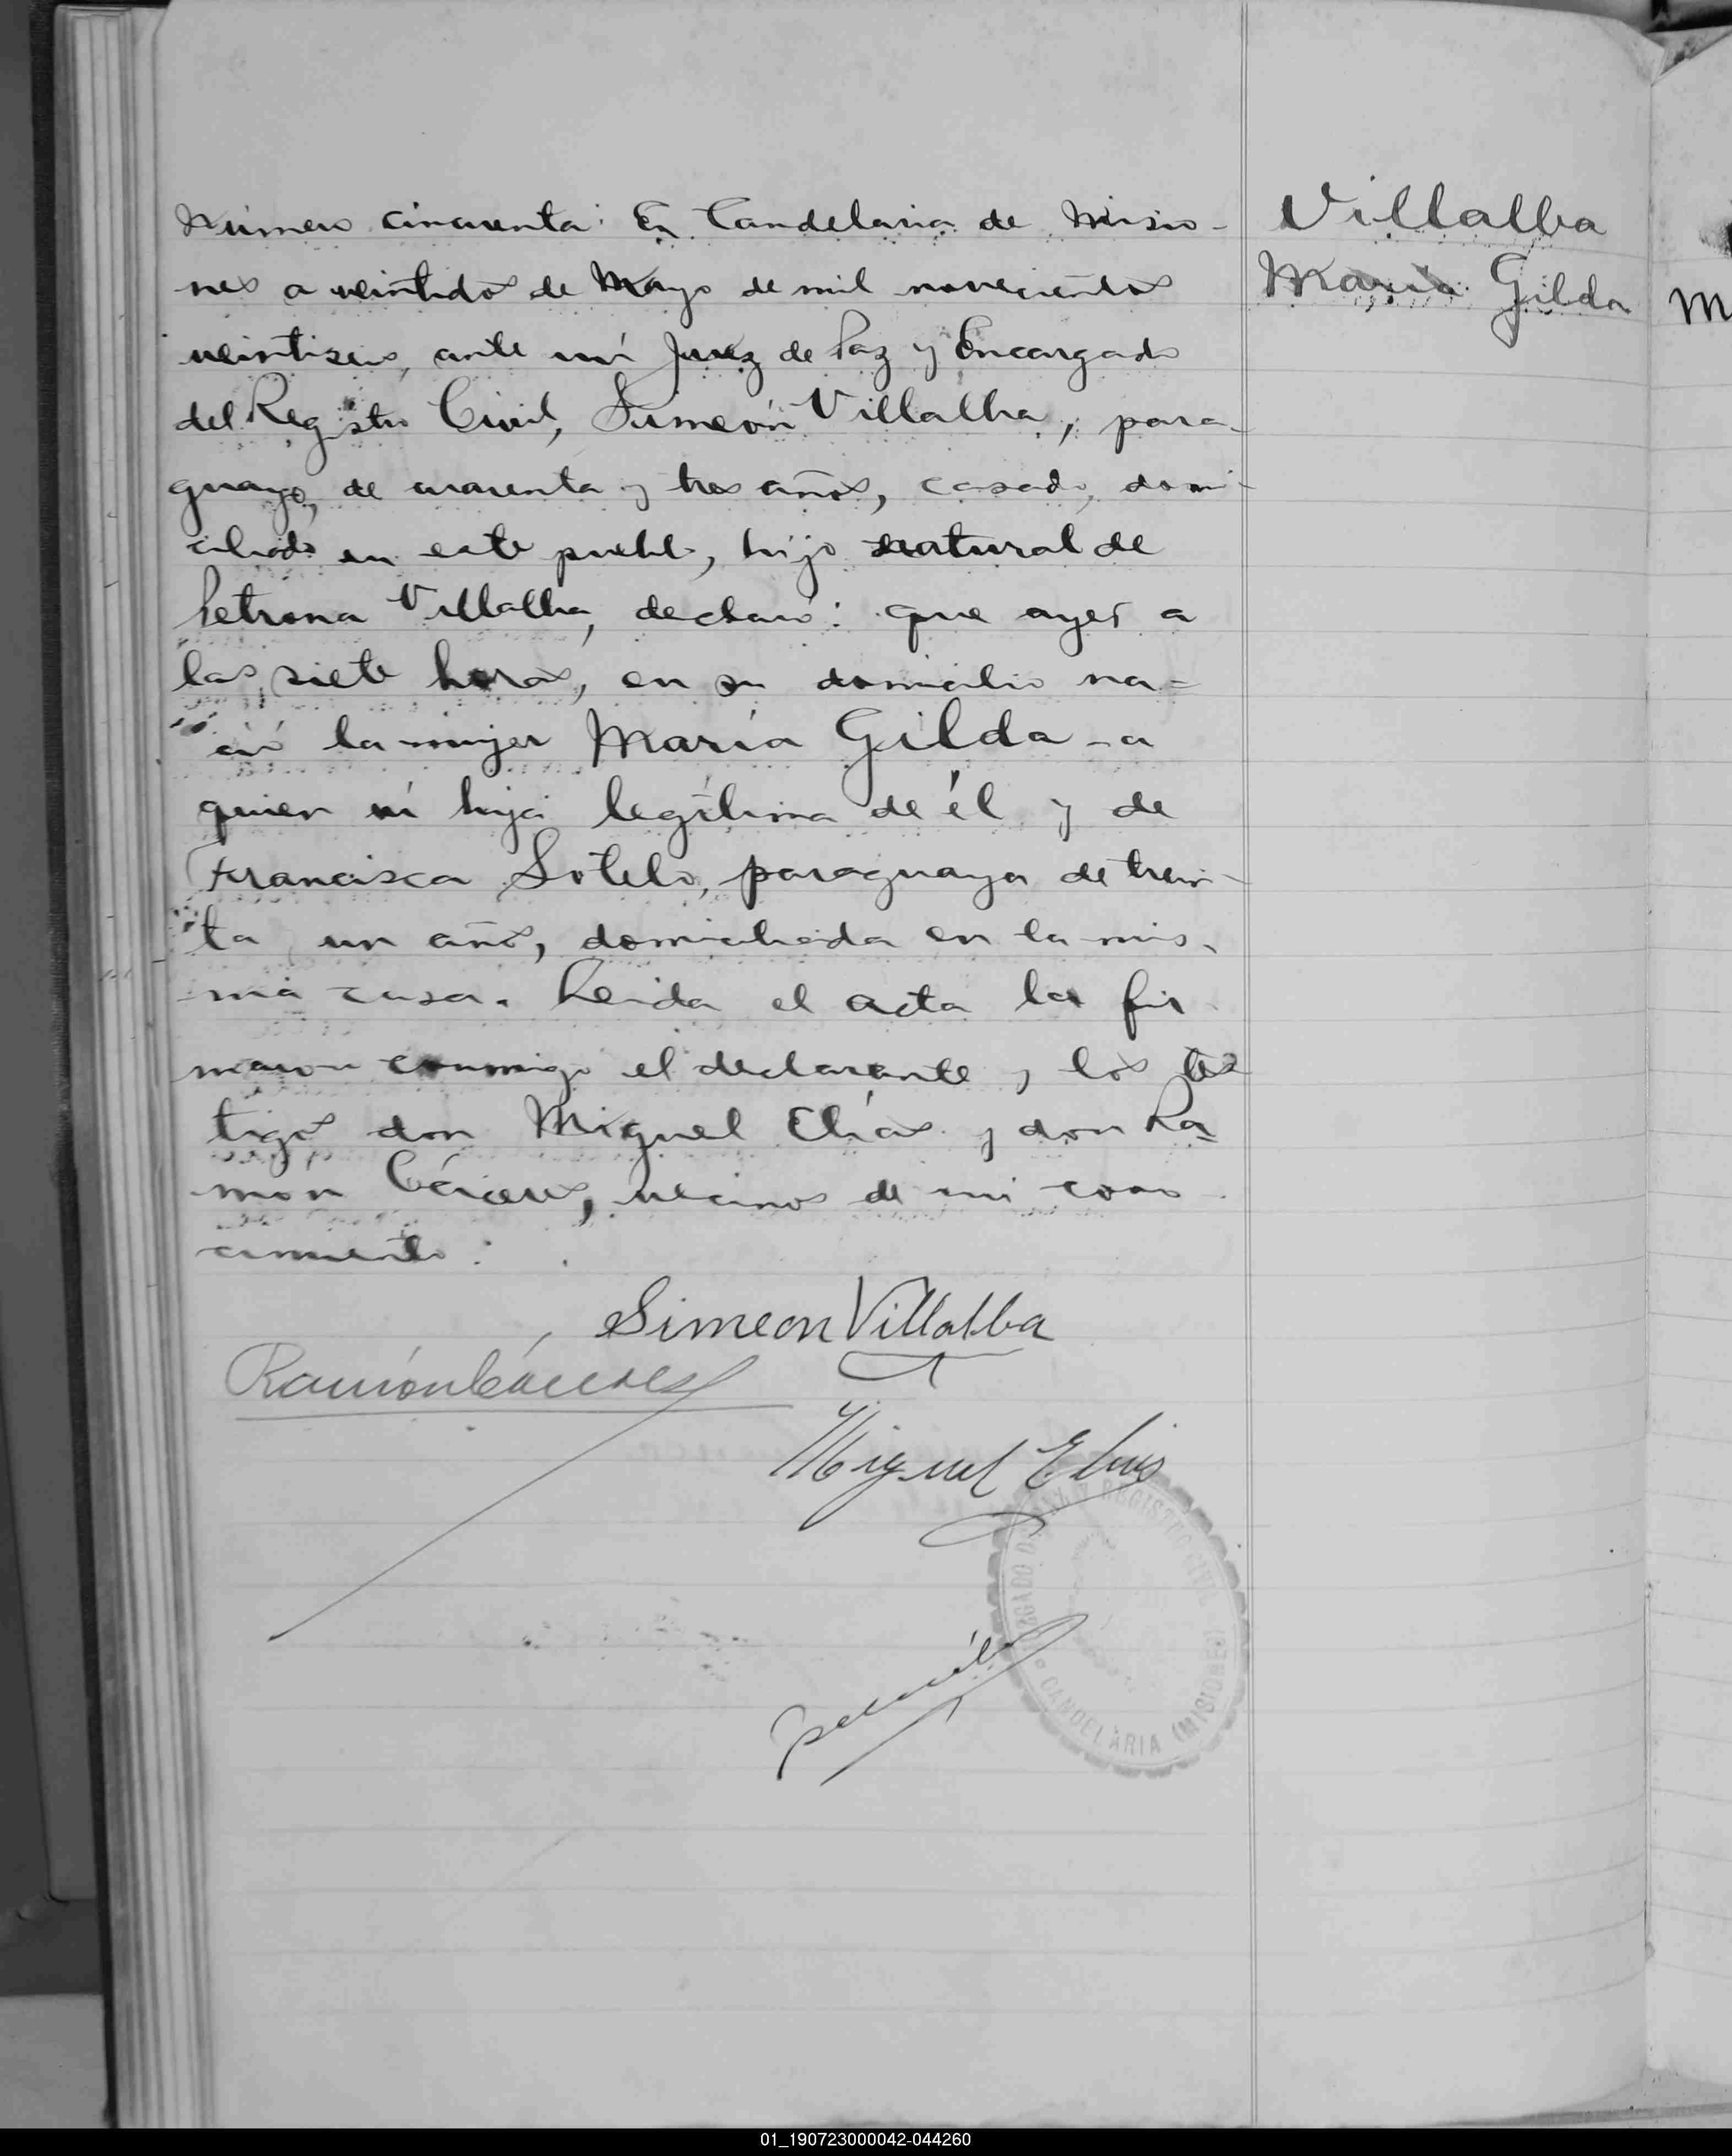 Número cincuenta: En Candelaria de Misio-
nes a veintidos de Mayo de mil novecientos
veintiseis, ante mí Juez de Paz y Encargado
del Registro Civil, Simeón Villalba, para-
guayo, de cuarenta y tres años, casado, domi-
ciliado en este pueblo, hijo natural de
Petrona Villalba, declaró: que ayer a
las siete horas, en su domicilio na-
ció la mujer María Gilda - a
quien vi hija legítima de él y de
Francisca Sotelo, paraguaya de trein-
ta un años, domiciliada en la mis-
ma casa. Leida el acta la fir
maron conmigo el declarante y los tes
tigos don Miguel Elías y don Ra-
mon Cáceres, vecinos de mi cono
cimiento:
Simeon Villalba
Ramón Cáceres
Miguel Elias
JUZGADO DE PAZ Y REGISTRO CIVIL
CANDELARIA (MISIONES)
Villalba
María Gilda
M
01_190723000042-044260